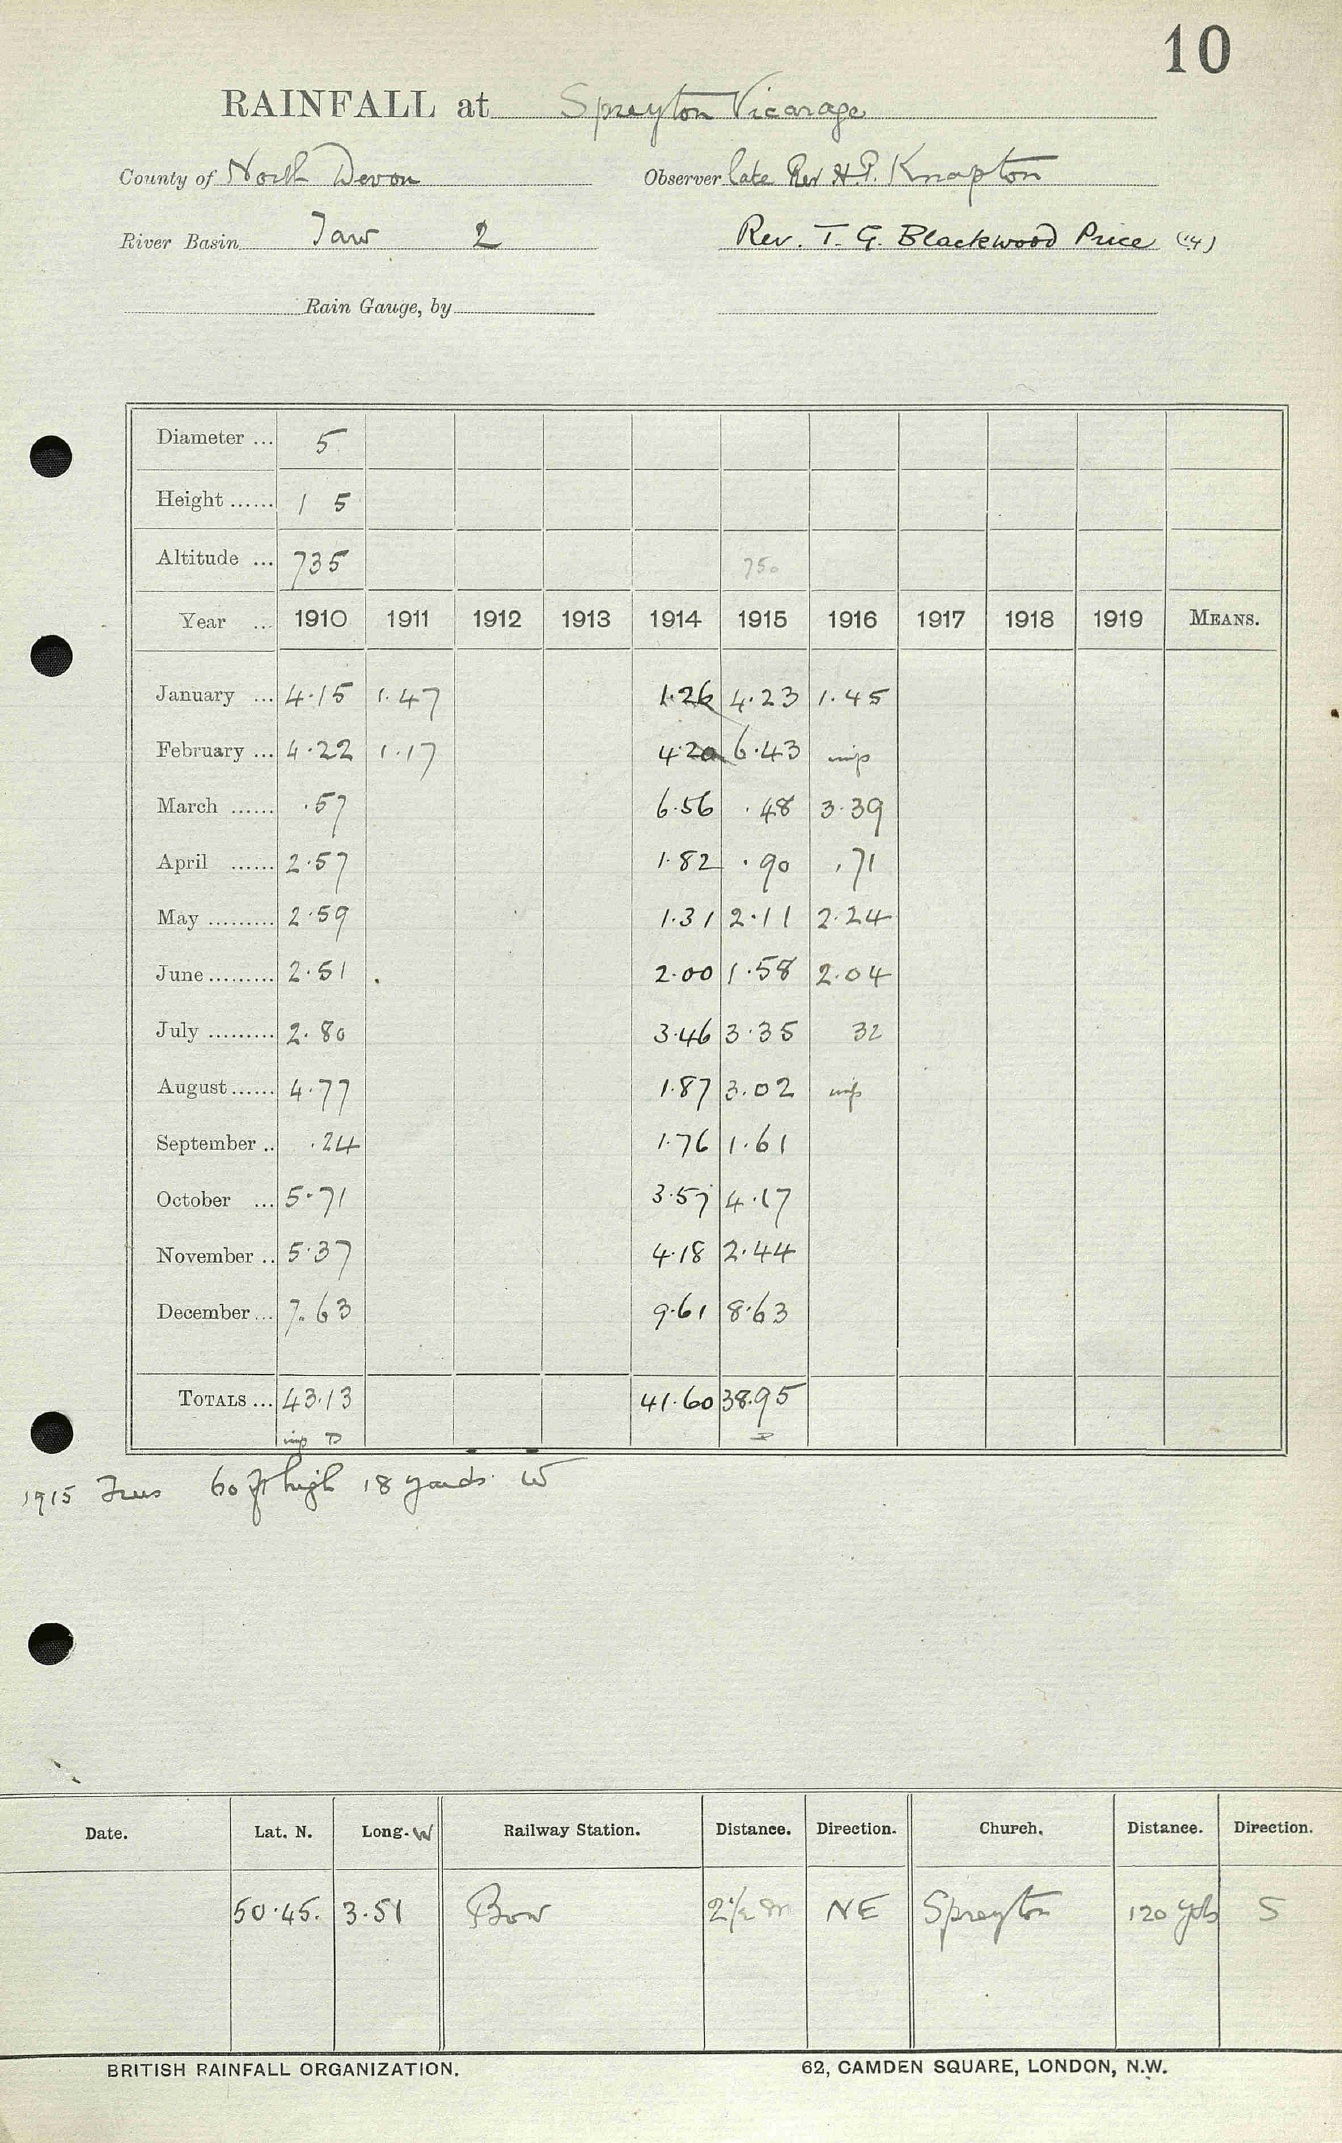 10
RAINFALL at Spreyton Vicarage
County of North Devon Observer late Rev H.P. Knapton
River Basin Taw 2 Rev. T. G. Blackwood Price ('14)
Rain Gauge, by
Diameter ... 5
Height ...... 1 5
Altitude ... 735 750
Year ... 1910 1911 1912 1913 1914 1915 1916 1917 1918 1919 MEANS.
January ... 4.15 1.47 1.26 4.23 1.45
February ... 4.22 1.17 4.20 6.43 imp
March ...... .57 6.56 .48 3.39
April ...... 2.57 1.82 .90 .71
May ......... 2.59 1.31 2.11 2.24
June ......... 2.51 2.00 1.58 2.04
July ......... 2.80 3.46 3.35 32
August ...... 4.77 1.87 3.02 imp
September .. .24 1.76 1.61
October ... 5.71 3.57 4.17
November .. 5.37 4.18 2.44
December ... 7.63 9.61 8.63
TOTALS ... 43.13 41.60 38.95
imp
1915 Trees 60 ft high 18 yards W
Date. Lat. N. Long. W Railway Station. Distance. Direction. Church. Distance. Direction.
50.45. 3.51 Bow 2½ m NE Spreyton 120 yds S
BRITISH RAINFALL ORGANIZATION. 62, CAMDEN SQUARE, LONDON, N.W.